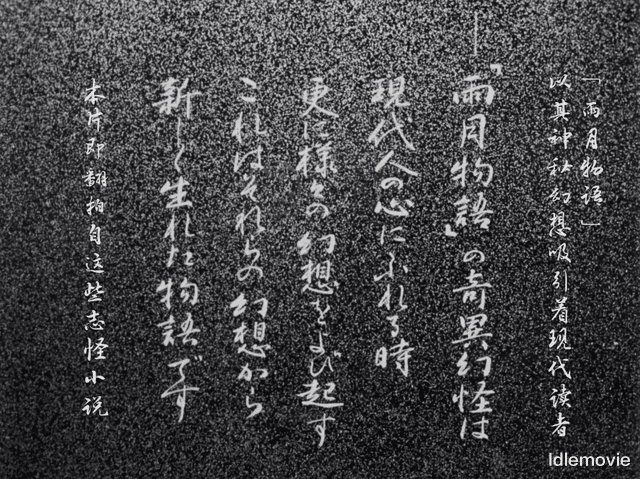 「雨月物语」
以其神秘幻想吸引着现代读者
─『雨月物語』の奇異幻怪は
現代人の心にふれる時
更に様々の幻想をよび起す
これはそれらの幻想から
新しく生れた物語です
本片即翻拍自这些志怪小说
Idlemovie